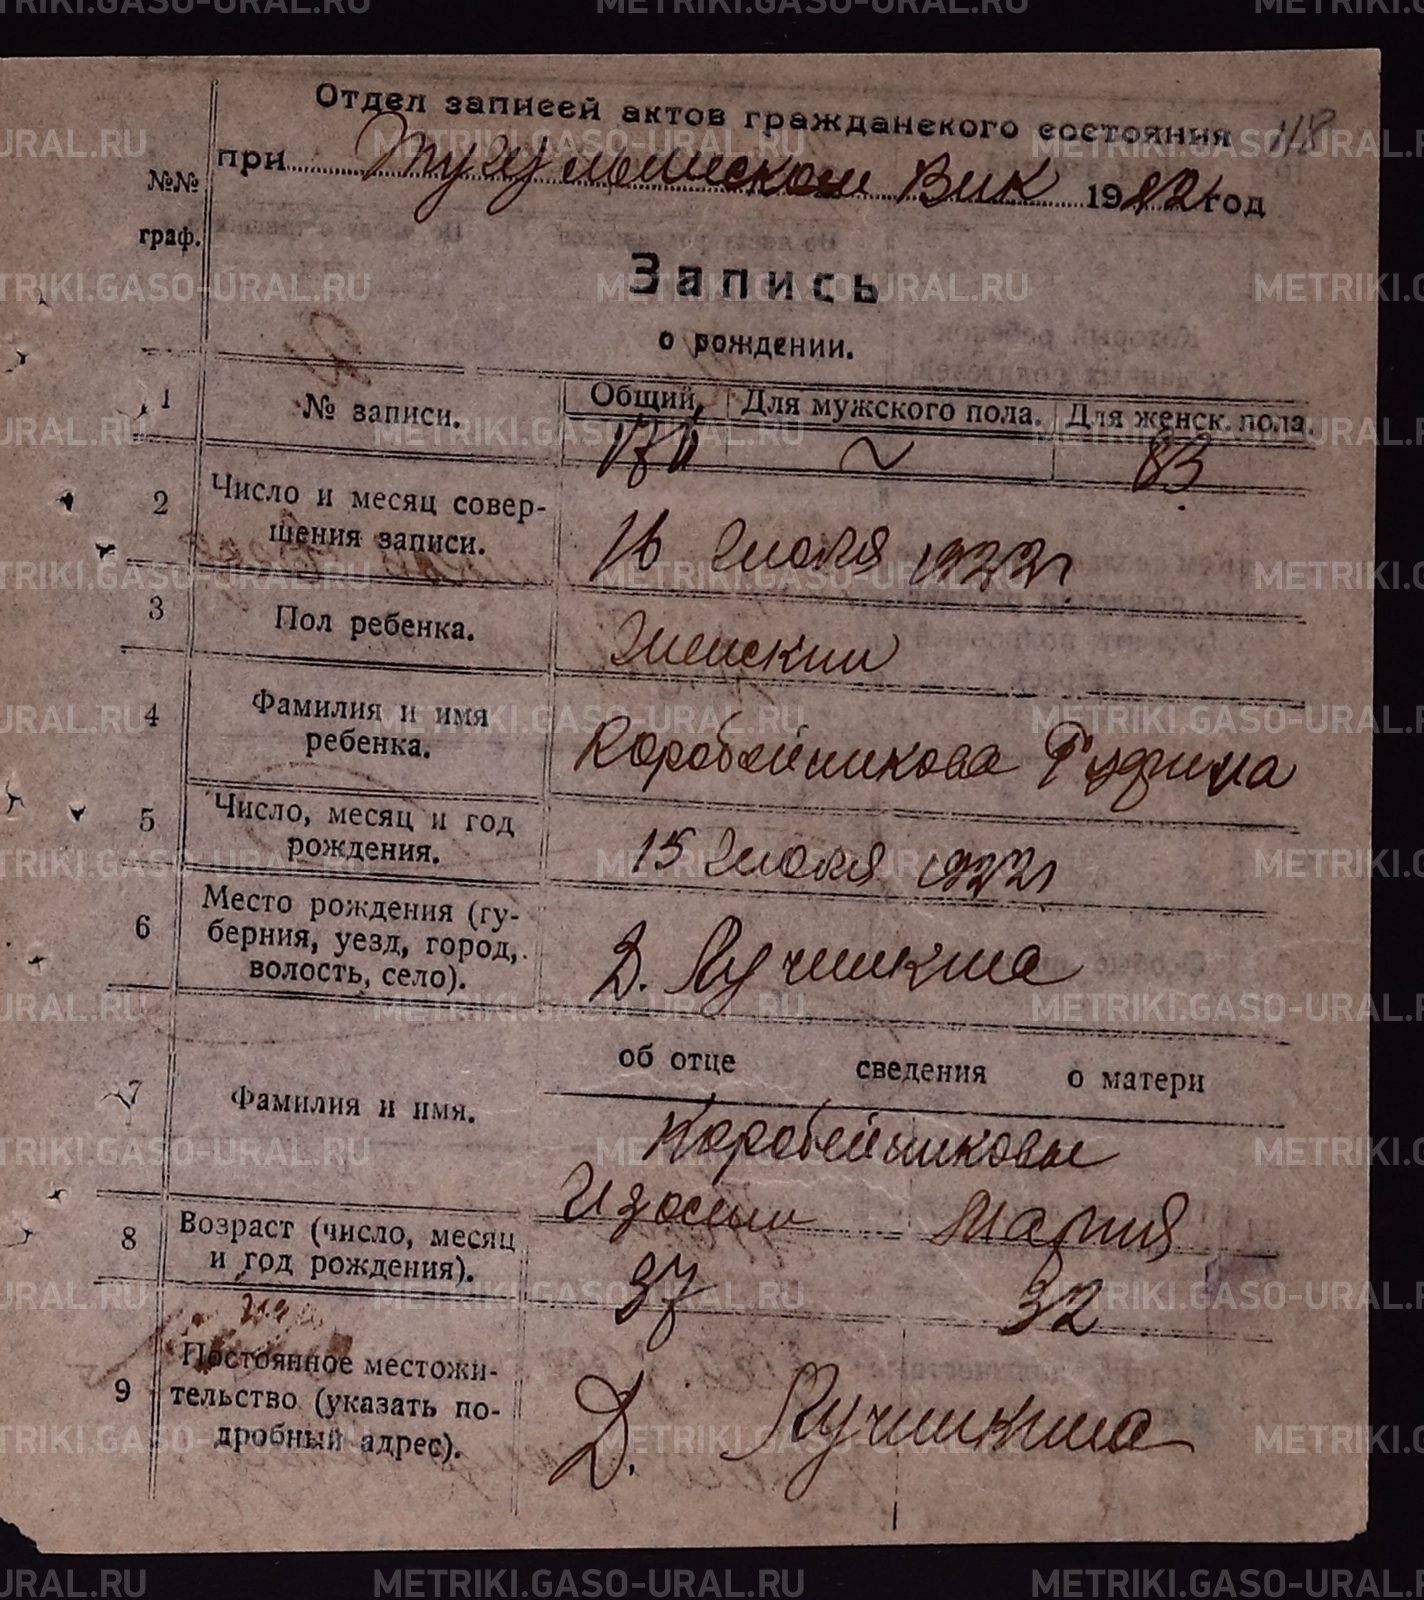 Отдел записей актов гражданского состояния 118
при Тугулымском Вик 1922 год
№№ граф.
Запись
о рождении.
1 № записи. Общий, Для мужского пола. Для женск. пола.
~ 83
2 Число и месяц совер-
шения записи. 16 Июля 1922 г
3 Пол ребенка. Женский
4 Фамилия и имя
ребенка. Коробейникова Руфина
5 Число, месяц и год
рождения. 15 Июля 1922 г
6 Место рождения (гу-
берния, уезд, город,
волость, село). Д. Лучинкина
об отце сведения о матери
7 Фамилия и имя. Коробейниковы
Изосим Мария
8 Возраст (число, месяц
и год рождения). 37 32
9 Постоянное местожи-
тельство (указать по-
дробный адрес). Д. Лучинкина
METRIKI.GASO-URAL.RU